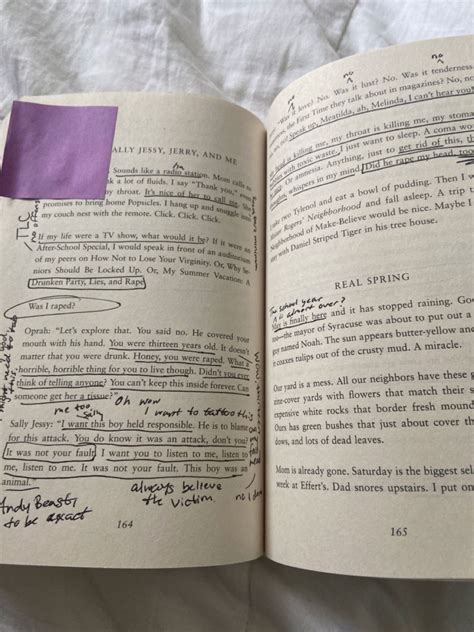 ALLY JESSY, JERRY, AND ME
ha
Sounds like a radio station. Mom calls to
k a lot of fluids. I say "Thank you," even
It's nice of her to call me. She
promises to bring home Popsicles. I hang up and snuggle into
my couch nest with the remote. Click. Click. Click.
TLC
no offense
If my life were a TV show, what would it be? If it were an
After-School Special, I would speak in front of an auditorium
of my peers on How Not to Lose Your Virginity. Or, Why Se-
niors Should Be Locked Up. Or, My Summer Vacation: A
Drunken Party, Lies, and Rape.
Was I raped?
Oprah: "Let's explore that. You said no. He covered your
mouth with his hand. You were thirteen years old. It doesn't
matter that you were drunk. Honey, you were raped. What a
horrible, horrible thing for you to live though. Didn't you ever
think of telling anyone? You can't keep this inside forever. Can
someone get her a tissue?"
Oh wow
me too
Sally
I want to tattoo this
Sally Jessy: "I want this boy held responsible. He is to blame
for this attack. You do know it was an attack, don't you?
It was not your fault. I want you to listen to me, listen to
me, listen to me. It was not your fault. This boy was an
animal."
always believe
the victim.
Andy Beast,
to be exact
164
no
no
no
love? No. Was it lust? No. Was it tenderness
the First Time they talk about in magazines? No, no
speak up, Meatilda, ah, Melinda, I can't hear you
is killing me, my throat is killing me, my stom
with toxic waste. I just want to sleep. A coma wou
Or amnesia. Anything, just to get rid of this, th
whispers in my mind. Did he rape my head, too
two Tylenol and eat a bowl of pudding. Then I
Rogers' Neighborhood and fall asleep. A trip
hborhood of Make-Believe would be nice. Maybe I
with Daniel Striped Tiger in his tree house.
REAL SPRING
The school year
is almost over?
May is finally here and it has stopped raining. Good
too—the mayor of Syracuse was about to put out a
guy named Noah. The sun appears butter-yellow and
it coaxes tulips out of the crusty mud. A miracle.
Our yard is a mess. All our neighbors have these g
zine-cover yards with flowers that match their s
expensive white rocks that border fresh mound
Ours has green bushes that just about cover th
dows, and lots of dead leaves.
Mom is already gone. Saturday is the biggest sel
week at Effert's. Dad snores upstairs. I put on
165